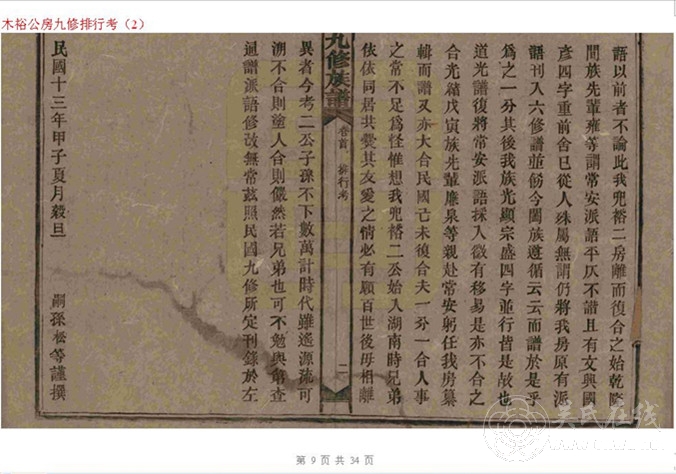 木裕公房九修排行考（2）
語以前者不論此我兜裕二房離而復合之始乾隆
間族先輩雍等謂常安派語平仄不諧且有文興國
彦四字重前舍已從人殊屬無謂仍將我房原有派
語刊入六修譜並飭今闔族遵循云云而譜於是乎
為之一分其後我族光顯宗盛四字並行皆是故也
道光譜復將常安派語採入微有移易是亦不合之
合光緒戊寅族先輩廉泉等親赴常安躬任我房纂
輯而譜又亦大合民國己未復合夫一分一合人事
之常不足為怪惟想我兜裕二公始入湖南時兄弟
依依同居共爨其友愛之情必有願百世後毋相離
九修族譜
卷首
排行考
二
異者今考二公子孫不下數萬計時代雖遙源流可
溯不合則塗人合則儼然若兄弟也可不勉與第查
通譜派語修改無常茲照民國九修所定刊錄於左
民國十三年甲子夏月穀旦
嗣孫松等謹撰
吴氏在线
第 9 页 共 34 页